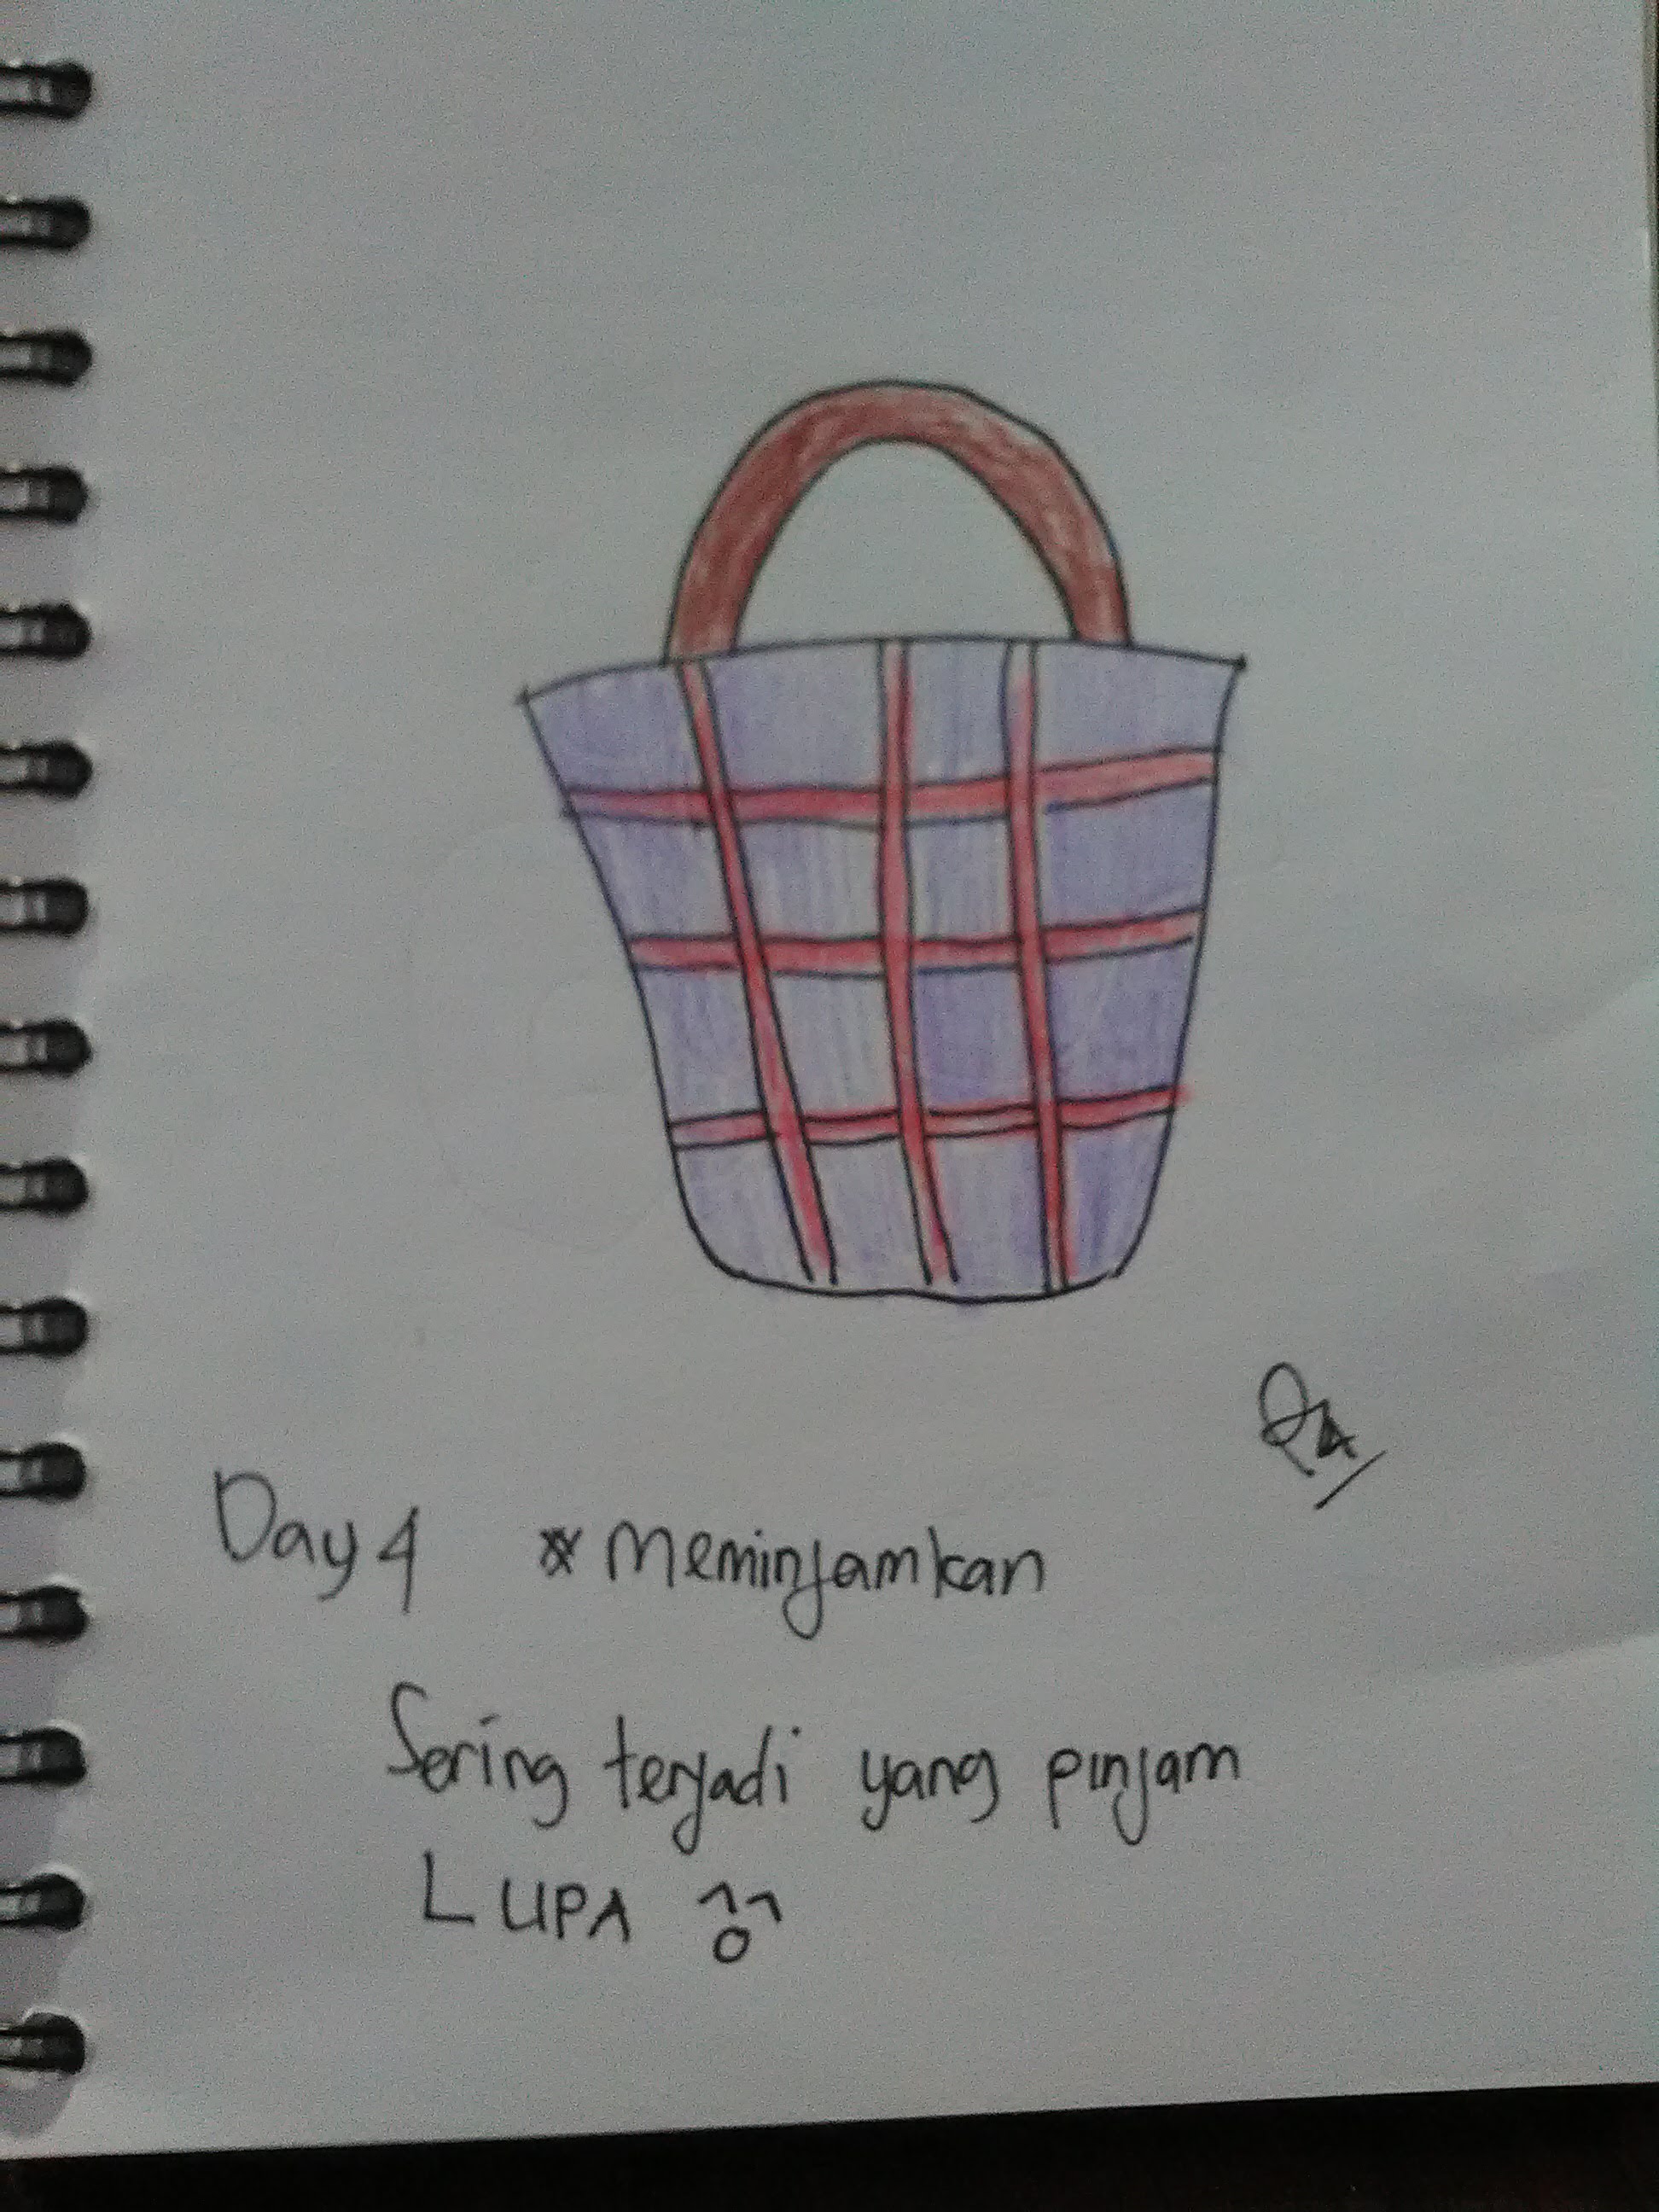 Day 4 * Meminjamkan
Sering terjadi yang pinjam
LUPA